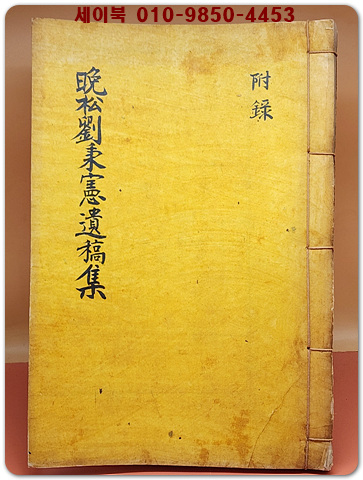 세이북 010-9850-4453
附録
晩松劉秉憲遺稿集